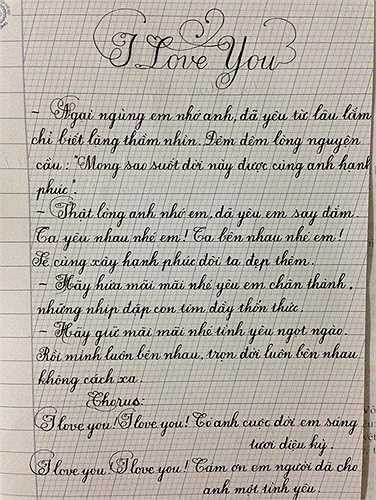 I Love You
- Ngại ngùng em nhớ anh, đã yêu từ lâu lắm
chỉ biết lặng thầm nhìn. Đêm đêm lòng nguyện
cầu: "Mong sao suốt đời này được cùng anh hạnh
phúc".
- Thật lòng anh nhớ em, đã yêu em say đắm.
Ta yêu nhau nhé em! Ta bên nhau nhé em!
Sẽ cùng xây hạnh phúc đôi ta đẹp thêm.
- Hãy hứa mãi mãi nhé yêu em chân thành,
những nhịp đập con tim đầy thổn thức.
- Hãy giữ mãi mãi nhé tình yêu ngọt ngào.
Rồi mình luôn bên nhau, trọn đời luôn bên nhau
không cách xa.
Chorus:
I love you! I love you! Có anh cuộc đời em sáng
tươi diệu kỳ.
I love you! I love you! Cám ơn em người đã cho
anh một tình yêu.